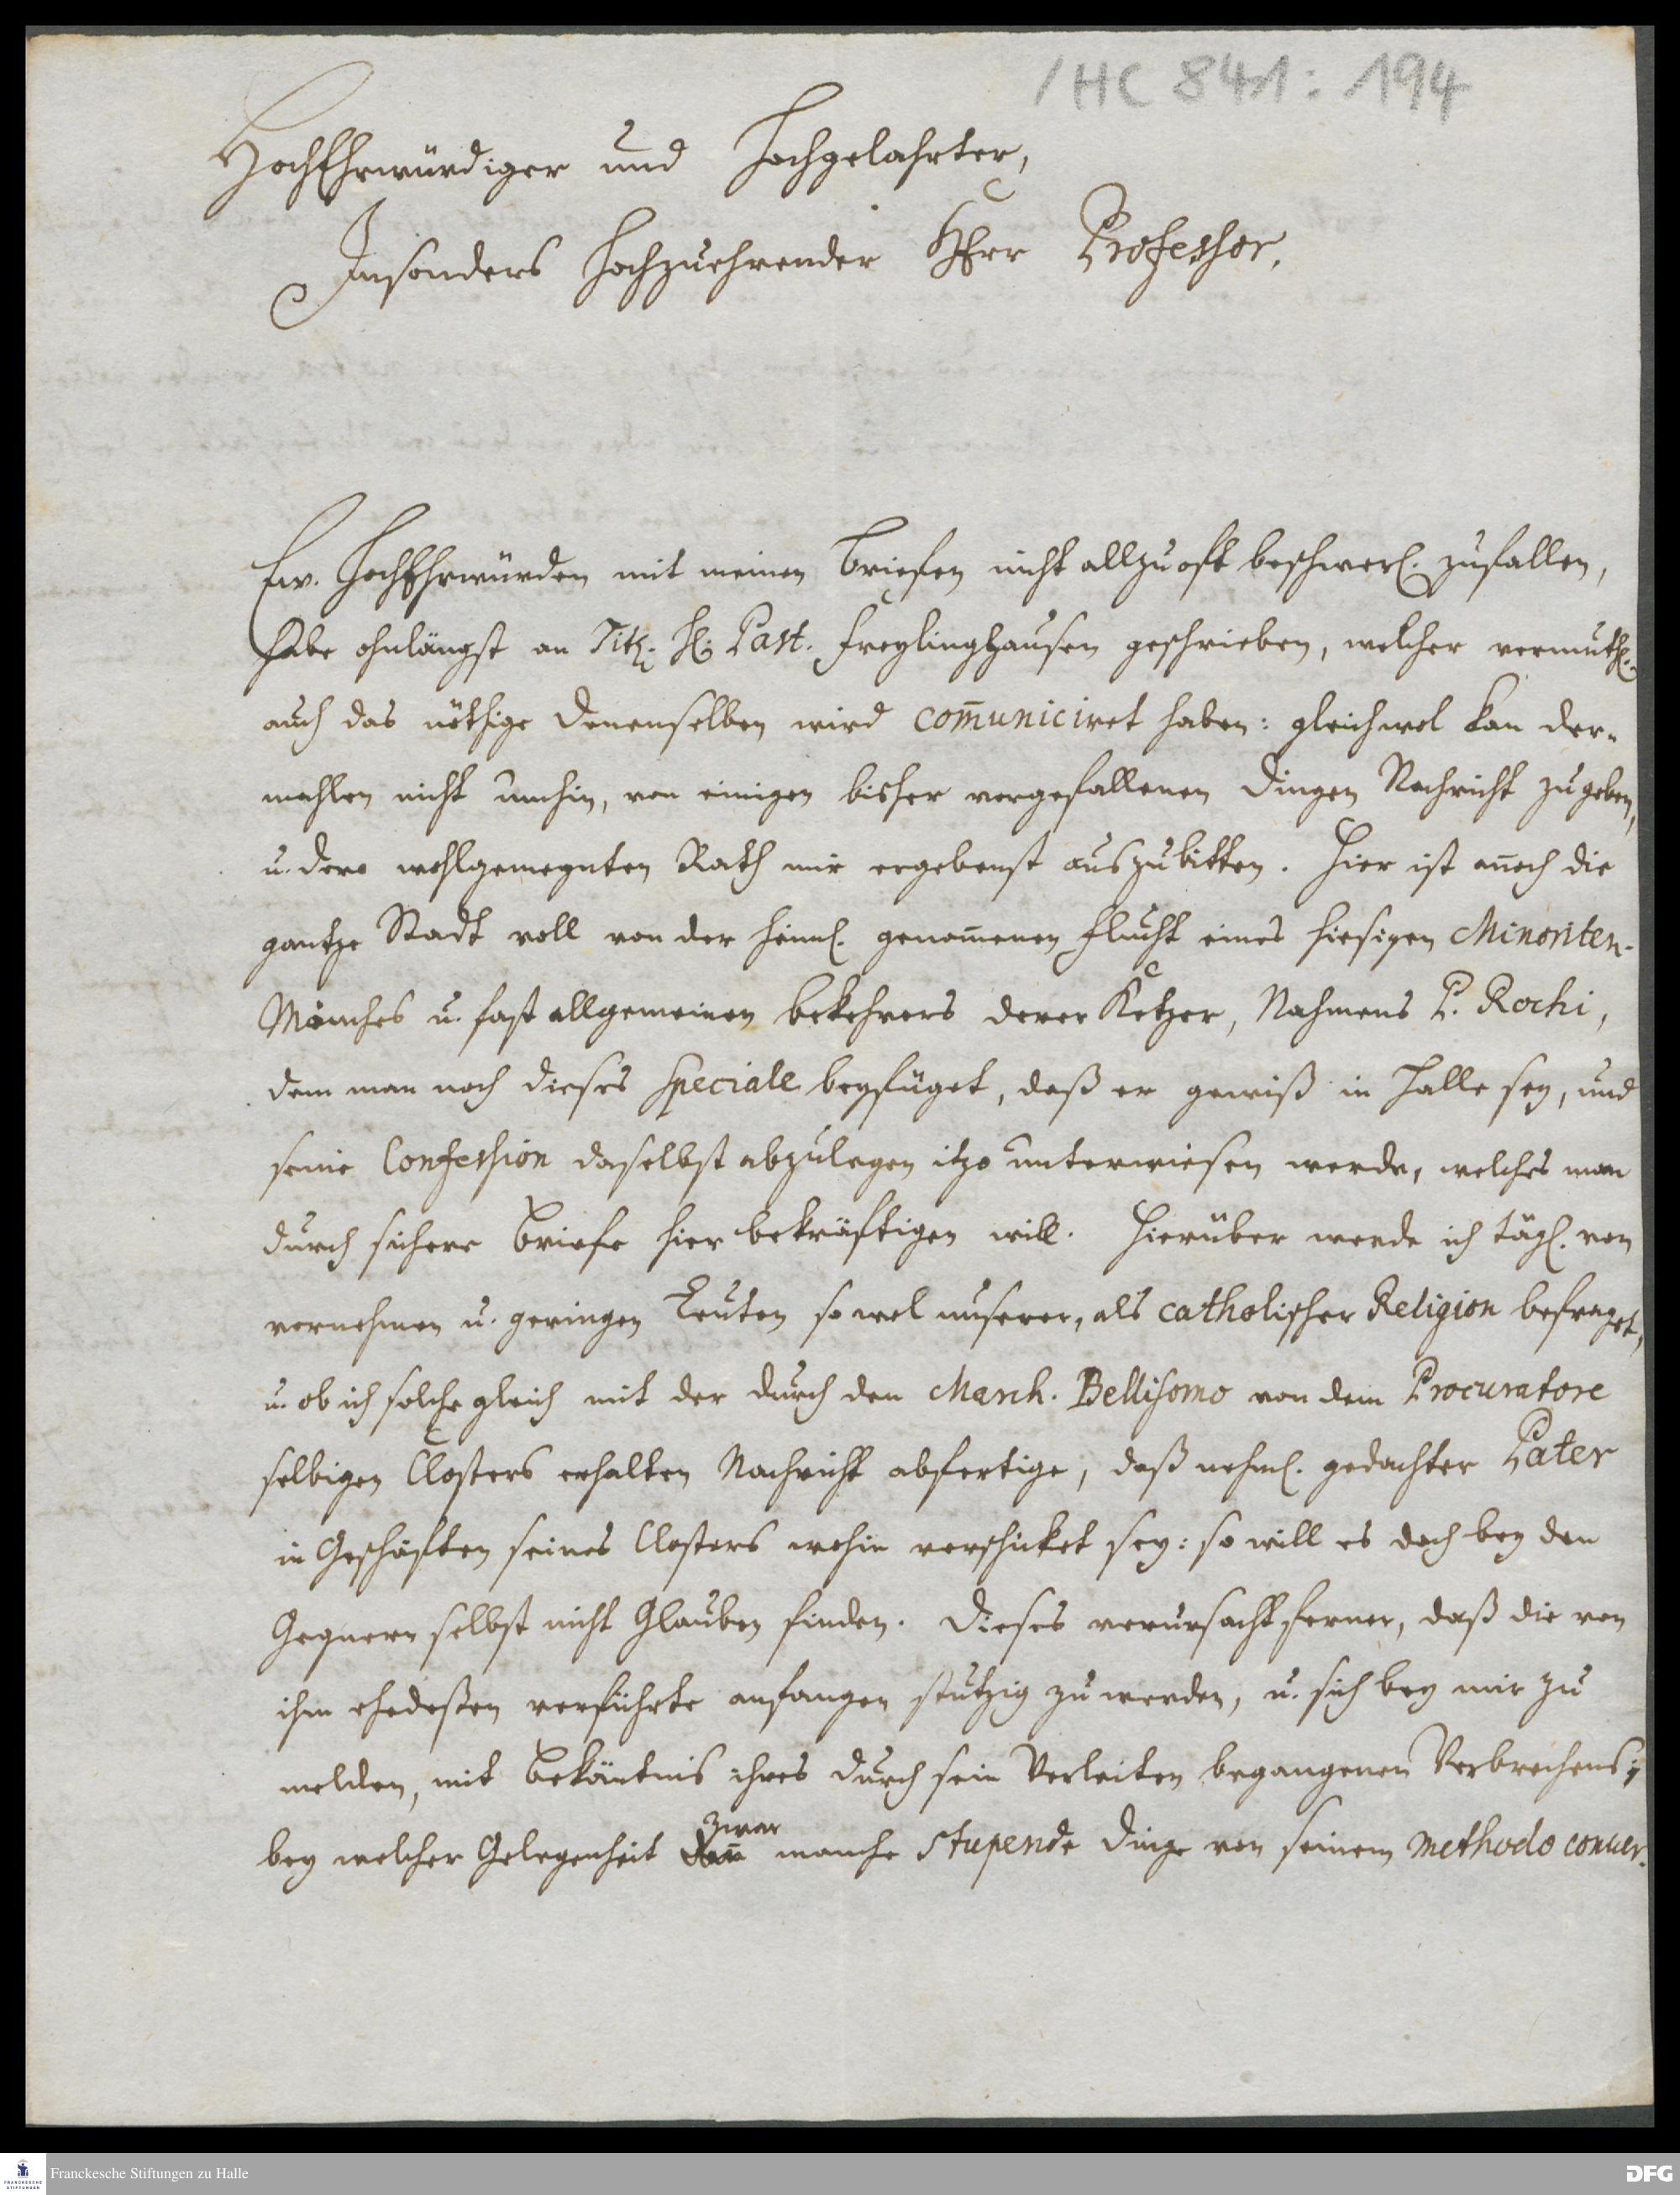 /HC 841:194
HochEhrwürdiger und Hochgelahrter,
Insonders Hochzuehrender HErr Professor,
Ew. HochEhrwürden mit meinen Briefen nicht allzuoft beschwerl. zufallen,
habe ohnlängst an Tit. H. Past. Freylinghausen geschrieben, welcher vermuthl.
auch das nöthige Denenselben wird com̅uniciret haben: gleichwol kan der-
mahlen nicht umhin, von einigen bisher vorgefallenen Dingen Nachricht zu geben,
u. dero wohlgemeynten Rath mir ergebenst auszubitten. Hier ist an̅och die
gantze Stadt voll von der heiml. genom̅enen Flucht eines hiesigen Minoriten-
Mönches u. fast allgemeinen bekehrers derer Ketzer, Nahmens P. Rochi,
dem man noch dieses speciale beyfüget, daß er gewiß in Halle sey, und
seine Confession daselbst abzulegen itzo unterwiesen werde, welches man
durch sichere Briefe hier bekräftigen will. Hierüber werde ich tägl. von
vornehmen u. geringen Leuten so wol unserer, als catholischer Religion befraget,
u. ob ich solche gleich mit der durch den March. Bellisomo von dem Procuratore
selbigen Closters erhalten Nachricht abfertige, daß nehml. gedachter Pater
in Geschäften seines Closters wohin verschicket sey: so will es doch bey den
Gegnern selbst nicht Glauben finden. Dieses verursacht ferner, daß die von
ihm ehedeßen verführte anfangen stutzig zu werden, u. sich bey mir zu
melden, mit Bekäntnis ihres durch sein Verleiten begangenen Verbrechens;
bey welcher Gelegenheit zwar manche stupende Dinge von seinem methodo conver-
Franckesche Stiftungen zu Halle
FRANCKESCHE STIFTUNGEN
DFG